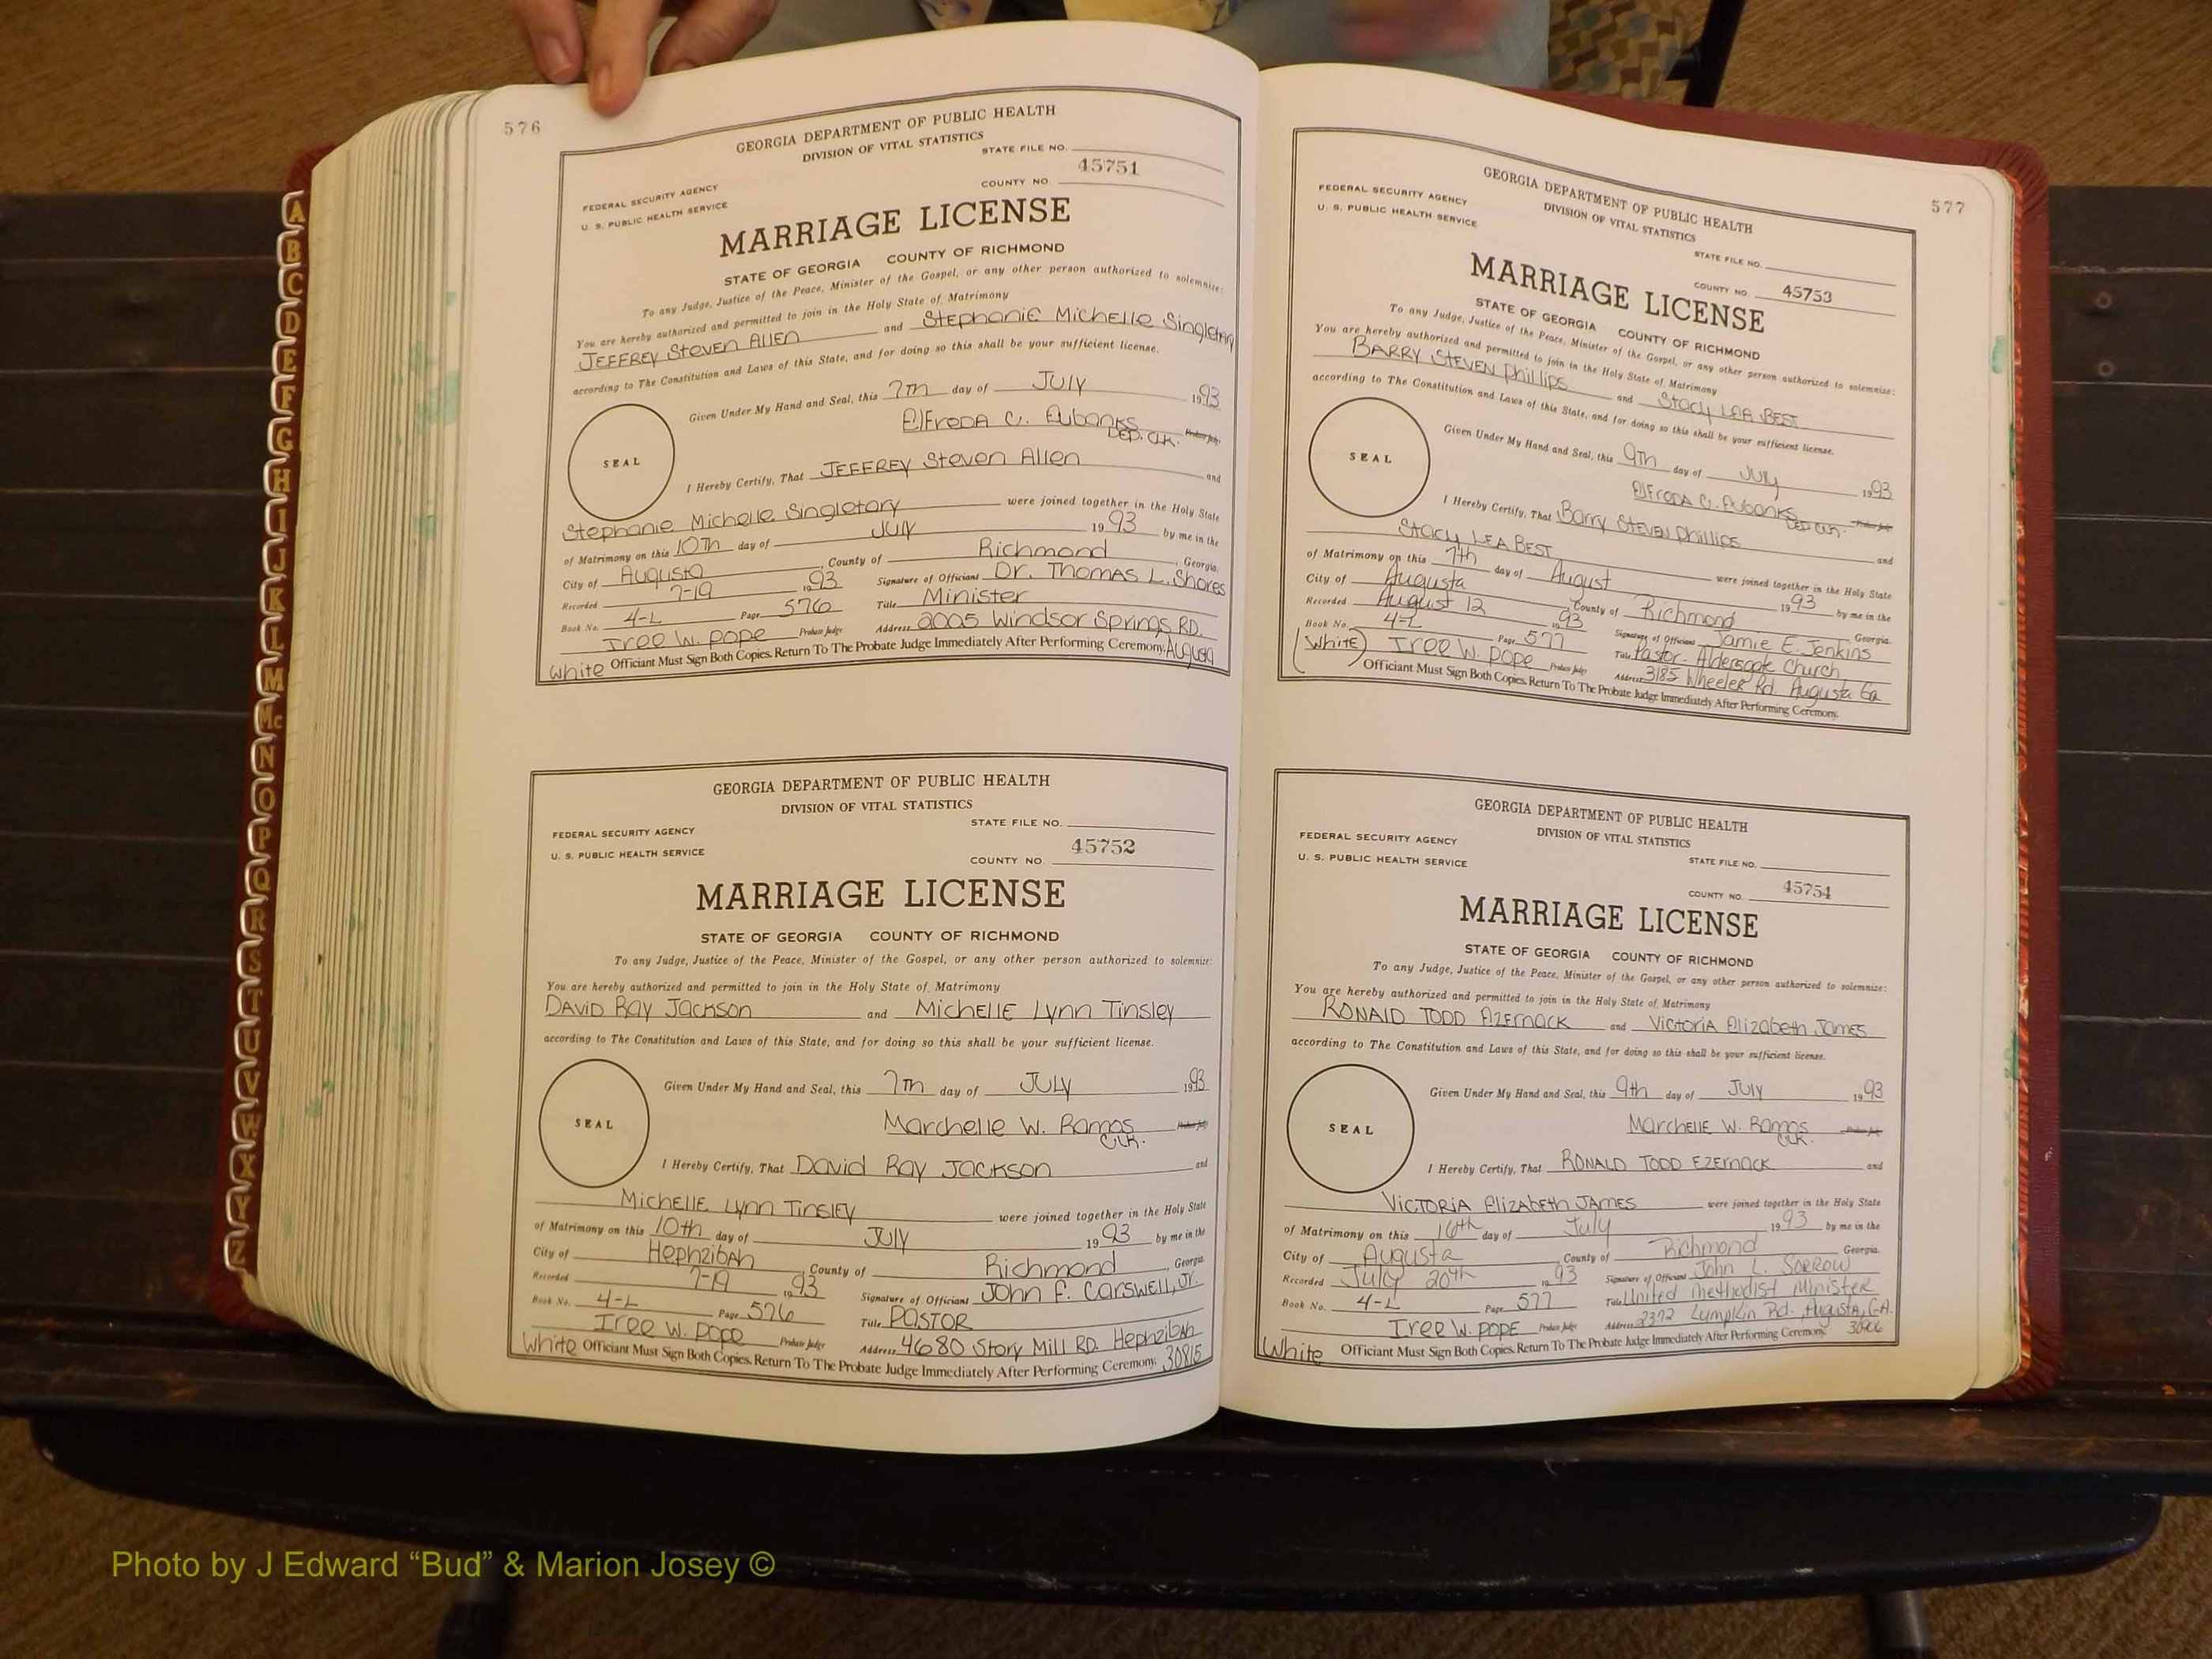 576
GEORGIA DEPARTMENT OF PUBLIC HEALTH
DIVISION OF VITAL STATISTICS
STATE FILE NO.
45751
FEDERAL SECURITY AGENCY
COUNTY NO.
U. S. PUBLIC HEALTH SERVICE
MARRIAGE LICENSE
STATE OF GEORGIA COUNTY OF RICHMOND
To any Judge, Justice of the Peace, Minister of the Gospel, or any other person authorized to solemnize:
You are hereby authorized and permitted to join in the Holy State of Matrimony
JEFFREY Steven Allen and Stephanie Michelle Singletary
according to The Constitution and Laws of this State, and for doing so this shall be your sufficient license.
Given Under My Hand and Seal, this 7Th day of JULY 1993
ElFreda C. Eubanks
DEP. CLK. Probate Judge
SEAL
I Hereby Certify, That JEFFREY Steven Allen and
Stephanie Michelle Singletary were joined together in the Holy State
of Matrimony on this 10Th day of JULY 1993 by me in the
City of Augusta, County of Richmond, Georgia.
Recorded 7-19 1993 Signature of Officiant Dr. Thomas L. Shores
Book No. 4-L Page 576 Title Minister
Iree W. Pope Probate Judge Address 2005 Windsor Springs RD.
White Officiant Must Sign Both Copies. Return To The Probate Judge Immediately After Performing Ceremony. Augusta
GEORGIA DEPARTMENT OF PUBLIC HEALTH
DIVISION OF VITAL STATISTICS
STATE FILE NO.
FEDERAL SECURITY AGENCY
45752
U. S. PUBLIC HEALTH SERVICE
COUNTY NO
MARRIAGE LICENSE
STATE OF GEORGIA COUNTY OF RICHMOND
To any Judge, Justice of the Peace, Minister of the Gospel, or any other person authorized to solemnize:
You are hereby authorized and permitted to join in the Holy State of Matrimony
David Ray Jackson and Michelle Lynn Tinsley
according to The Constitution and Laws of this State, and for doing so this shall be your sufficient license.
Given Under My Hand and Seal, this 7Th day of JULY 1993
Marchelle W. Ramos Probate Judge
CLK.
SEAL
I Hereby Certify, That David Ray Jackson and
Michelle Lynn Tinsley were joined together in the Holy State
of Matrimony on this 10th day of JULY 1993 by me in the
City of Hephzibah, County of Richmond, Georgia
Recorded 7-19 1993 Signature of Officiant John F. Carswell, Jr.
Book No. 4-L Page 576 Title PASTOR
Iree W. Pope Probate Judge Address 4680 Story Mill RD. Hephzibah
White Officiant Must Sign Both Copies. Return To The Probate Judge Immediately After Performing Ceremony. 30815
577
GEORGIA DEPARTMENT OF PUBLIC HEALTH
DIVISION OF VITAL STATISTICS
FEDERAL SECURITY AGENCY
U. S. PUBLIC HEALTH SERVICE
STATE FILE NO.
COUNTY NO. 45753
MARRIAGE LICENSE
STATE OF GEORGIA COUNTY OF RICHMOND
To any Judge, Justice of the Peace, Minister of the Gospel, or any other person authorized to solemnize:
You are hereby authorized and permitted to join in the Holy State of Matrimony
BARRY STEVEN Phillips and Stacy LEA BEST
according to The Constitution and Laws of this State, and for doing so this shall be your sufficient license.
Given Under My Hand and Seal, this 9Th day of JUly 1993
ElFreda C. Eubanks
DEP CLK. Probate Judge
SEAL
I Hereby Certify, That Barry STEVEN Phillips and
Stacy LEA BEST were joined together in the Holy State
of Matrimony on this 7th day of August 1993 by me in the
City of Augusta, County of Richmond, Georgia
Recorded August 12 1993 Signature of Officiant Jamie E. Jenkins
Book No. 4-L Page 577 Title Pastor- Aldersgate Church
(White) Iree W. Pope Probate Judge Address 3185 Wheeler Rd. Augusta Ga
Officiant Must Sign Both Copies. Return To The Probate Judge Immediately After Performing Ceremony.
GEORGIA DEPARTMENT OF PUBLIC HEALTH
DIVISION OF VITAL STATISTICS
FEDERAL SECURITY AGENCY
U. S. PUBLIC HEALTH SERVICE
STATE FILE NO.
COUNTY NO. 45754
MARRIAGE LICENSE
STATE OF GEORGIA COUNTY OF RICHMOND
To any Judge, Justice of the Peace, Minister of the Gospel, or any other person authorized to solemnize:
You are hereby authorized and permitted to join in the Holy State of Matrimony
RONALD TODD EZERNACK and Victoria Elizabeth James
according to The Constitution and Laws of this State, and for doing so this shall be your sufficient license.
Given Under My Hand and Seal, this 9th day of JUly 1993
Marchelle W. Ramos Probate Judge
CLK.
SEAL
I Hereby Certify, That RONALD TODD EZERNACK and
VICTORIA Elizabeth JAMES were joined together in the Holy State
of Matrimony on this 16th day of July 1993 by me in the
City of Augusta, County of Richmond, Georgia.
Recorded July 20th 1993 Signature of Officiant John L. Sorrow
Book No. 4-L Page 577 Title United Methodist Minister
Iree W. POPE Probate Judge Address 2372 Lumpkin Rd., Augusta, GA.
White Officiant Must Sign Both Copies. Return To The Probate Judge Immediately After Performing Ceremony. 30906
A
B
C
D
E
F
G
H
I
J
K
L
M
Mc
N
O
P
Q
R
S
T
U
V
W
X
Y
Z
Photo by J Edward “Bud” & Marion Josey ©